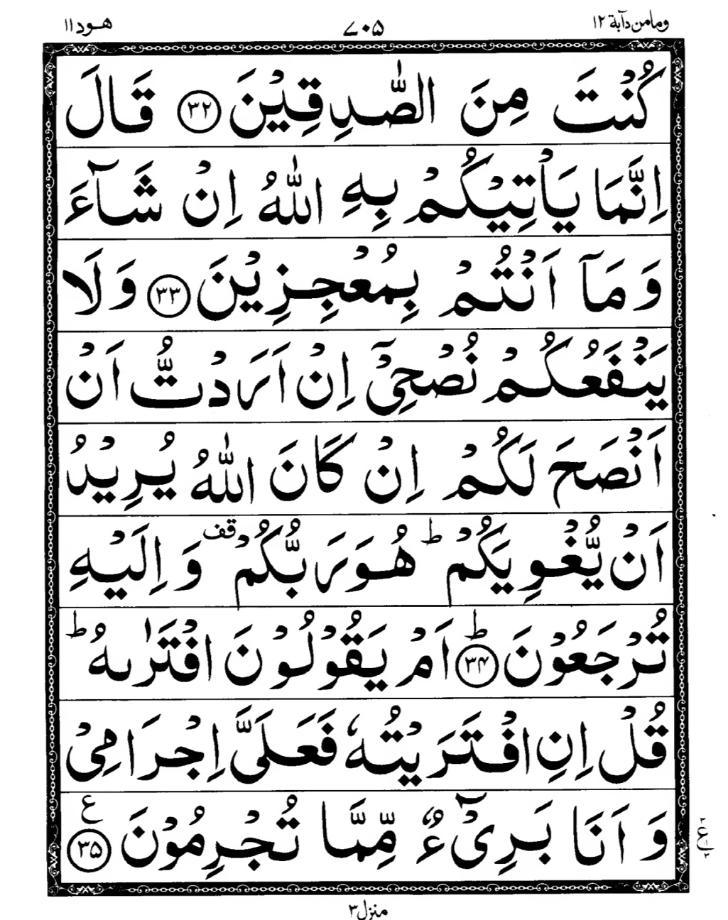 ومامن دآبة ١٢ ٧٠٥ هود ١١
كُنْتَ مِنَ الصّٰدِقِيْنَ ﴿۳۲﴾ قَالَ
اِنَّمَا يَاْتِيْكُمْ بِهِ اللّٰهُ اِنْ شَآءَ
وَمَاۤ اَنْتُمْ بِمُعْجِزِيْنَ ﴿۳۳﴾ وَلَا
يَنْفَعُكُمْ نُصْحِيْۤ اِنْ اَرَدْتُّ اَنْ
اَنْصَحَ لَكُمْ اِنْ كَانَ اللّٰهُ يُرِيْدُ
اَنْ يُّغْوِيَكُمْ ؕ هُوَ رَبُّكُمْ قف وَ اِلَيْهِ
تُرْجَعُوْنَ ﴿۳۴﴾ ؕ اَمْ يَقُوْلُوْنَ افْتَرٰىهُ ؕ
قُلْ اِنِ افْتَرَيْتُهٗ فَعَلَيَّ اِجْرَامِيْ
وَ اَنَا بَرِيْٓءٌ مِّمَّا تُجْرِمُوْنَ ﴿۳۵﴾ ع
منزل ٣